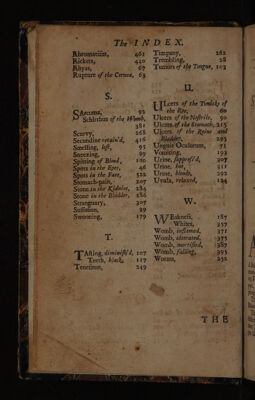 The INDEX.
Rheumatism, 461
Rickets, 440
Rhyas, 67
Rupture of the Cornea, 63
S.
Sarcoma, 92
Schirrhus of the Womb,
381
Scurvy, 268
Secundine retain'd, 416
Smelling, lost, 95
Sneezing, 99
Spitting of Blood,
Spots in the Eyes,
Spots in the Face, 522
Stomach-pain, 207
Stone in the Kidneys, 284
Stone in the Bladder, 286
Strangurany, 307
Suffusion, 29
Swooning, 179
T.
Tasting, diminish'd, 107
Teeth, black, 117
Tenesmus, 249
Timpany, 262
Trembling, 28
Tumors of the Tongue, 103
U.
Ulcers of the Tunicks of
the Eye, 60
Ulcers of the Nostrils, 90
Ulcers of the Stomach, 215
Ulcers of the Reins and
Bladder, 295
Unguis Oculorum, 71
Vomiting, 193
Urine, suppress'd, 307
Urine, hot, 311
Urine, bloody, 292
Uvula, relaxed, 124
W.
Weakness, 187
Whites, 357
Womb, inflamed, 371
Womb, ulcerated, 375
Womb, mortified, 387
Womb, falling, 393
Worms, 252
THE